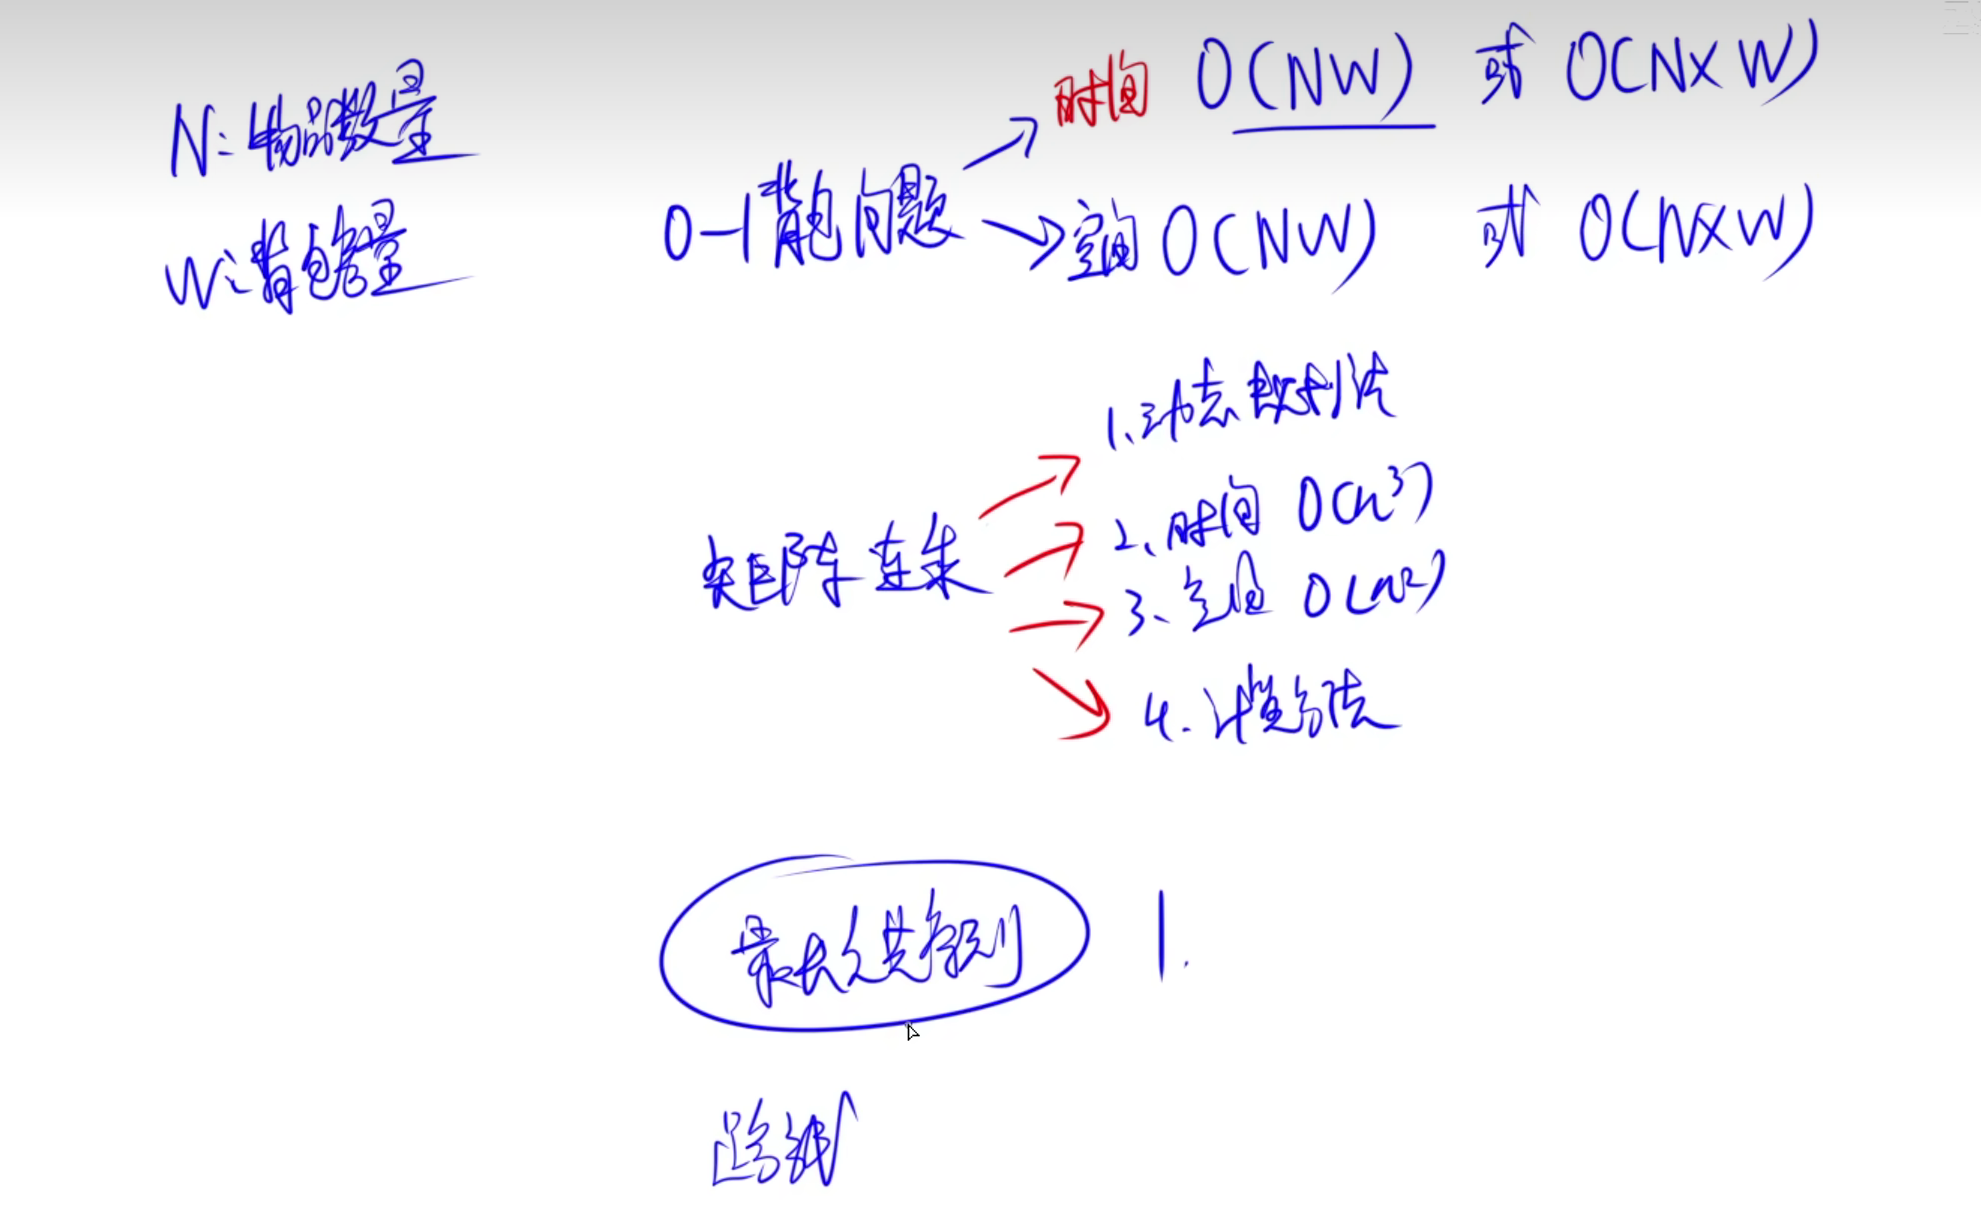 N:物品数量
W:背包容量
0-1背包问题
时间 O(NW) 或 O(N×W)
空间 O(NW) 或 O(N×W)
矩阵连乘
1、动态规划法
2、时间 O(n³)
3、空间 O(n²)
4.计算方法
最长公共序列 1.